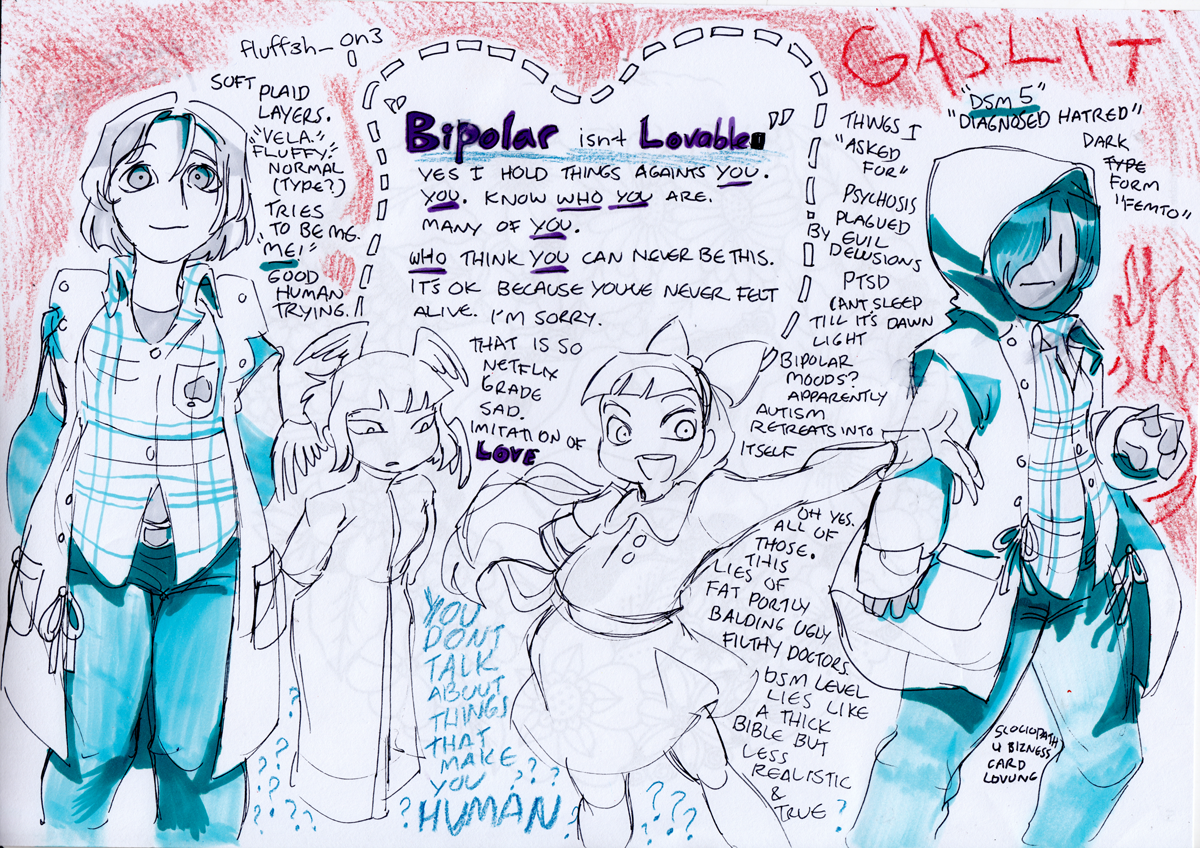 fluff3h_on3
SOFT PLAID
LAYERS.
"VELA."
FLUFFY.
NORMAL
(TYPE?)
TRIES
TO BE ME.
"ME!"
GOOD
HUMAN
TRYING.
"Bipolar isn't Lovable"
YES I HOLD THINGS AGAINTS YOU.
YOU. KNOW WHO YOU ARE.
MANY OF YOU.
WHO THINK YOU CAN NEVER BE THIS.
IT'S OK BECAUSE YOU'VE NEVER FELT
ALIVE. I'M SORRY.
THAT IS SO
NETFLIX
GRADE
SAD.
IMITATION OF
LOVE
YOU
DONT
TALK
ABOUT
THINGS
THAT
MAKE
YOU
HUMAN
GASLIT
"DSM 5"
"DIAGNOSED HATRED"
DARK
TYPE
FORM
"FEMTO"
THINGS I
"ASKED
FOR"
PSYCHOSIS
PLAGUED
BY EVIL
DELUSIONS
PTSD
CANT SLEEP
TILL IT'S DAWN
LIGHT
BIPOLAR
MOODS?
APPARENTLY
AUTISM
RETREATS INTO
ITSELF
OH YES.
ALL OF
THOSE.
THIS
LIES OF
FAT PORTLY
BALDING UGLY
FILTHY DOCTORS.
DSM LEVEL
LIES LIKE
A THICK
BIBLE BUT
LESS
REALISTIC
&
TRUE
SCOCIOPATH
4 BIZNESS
CARD
LOVUNG